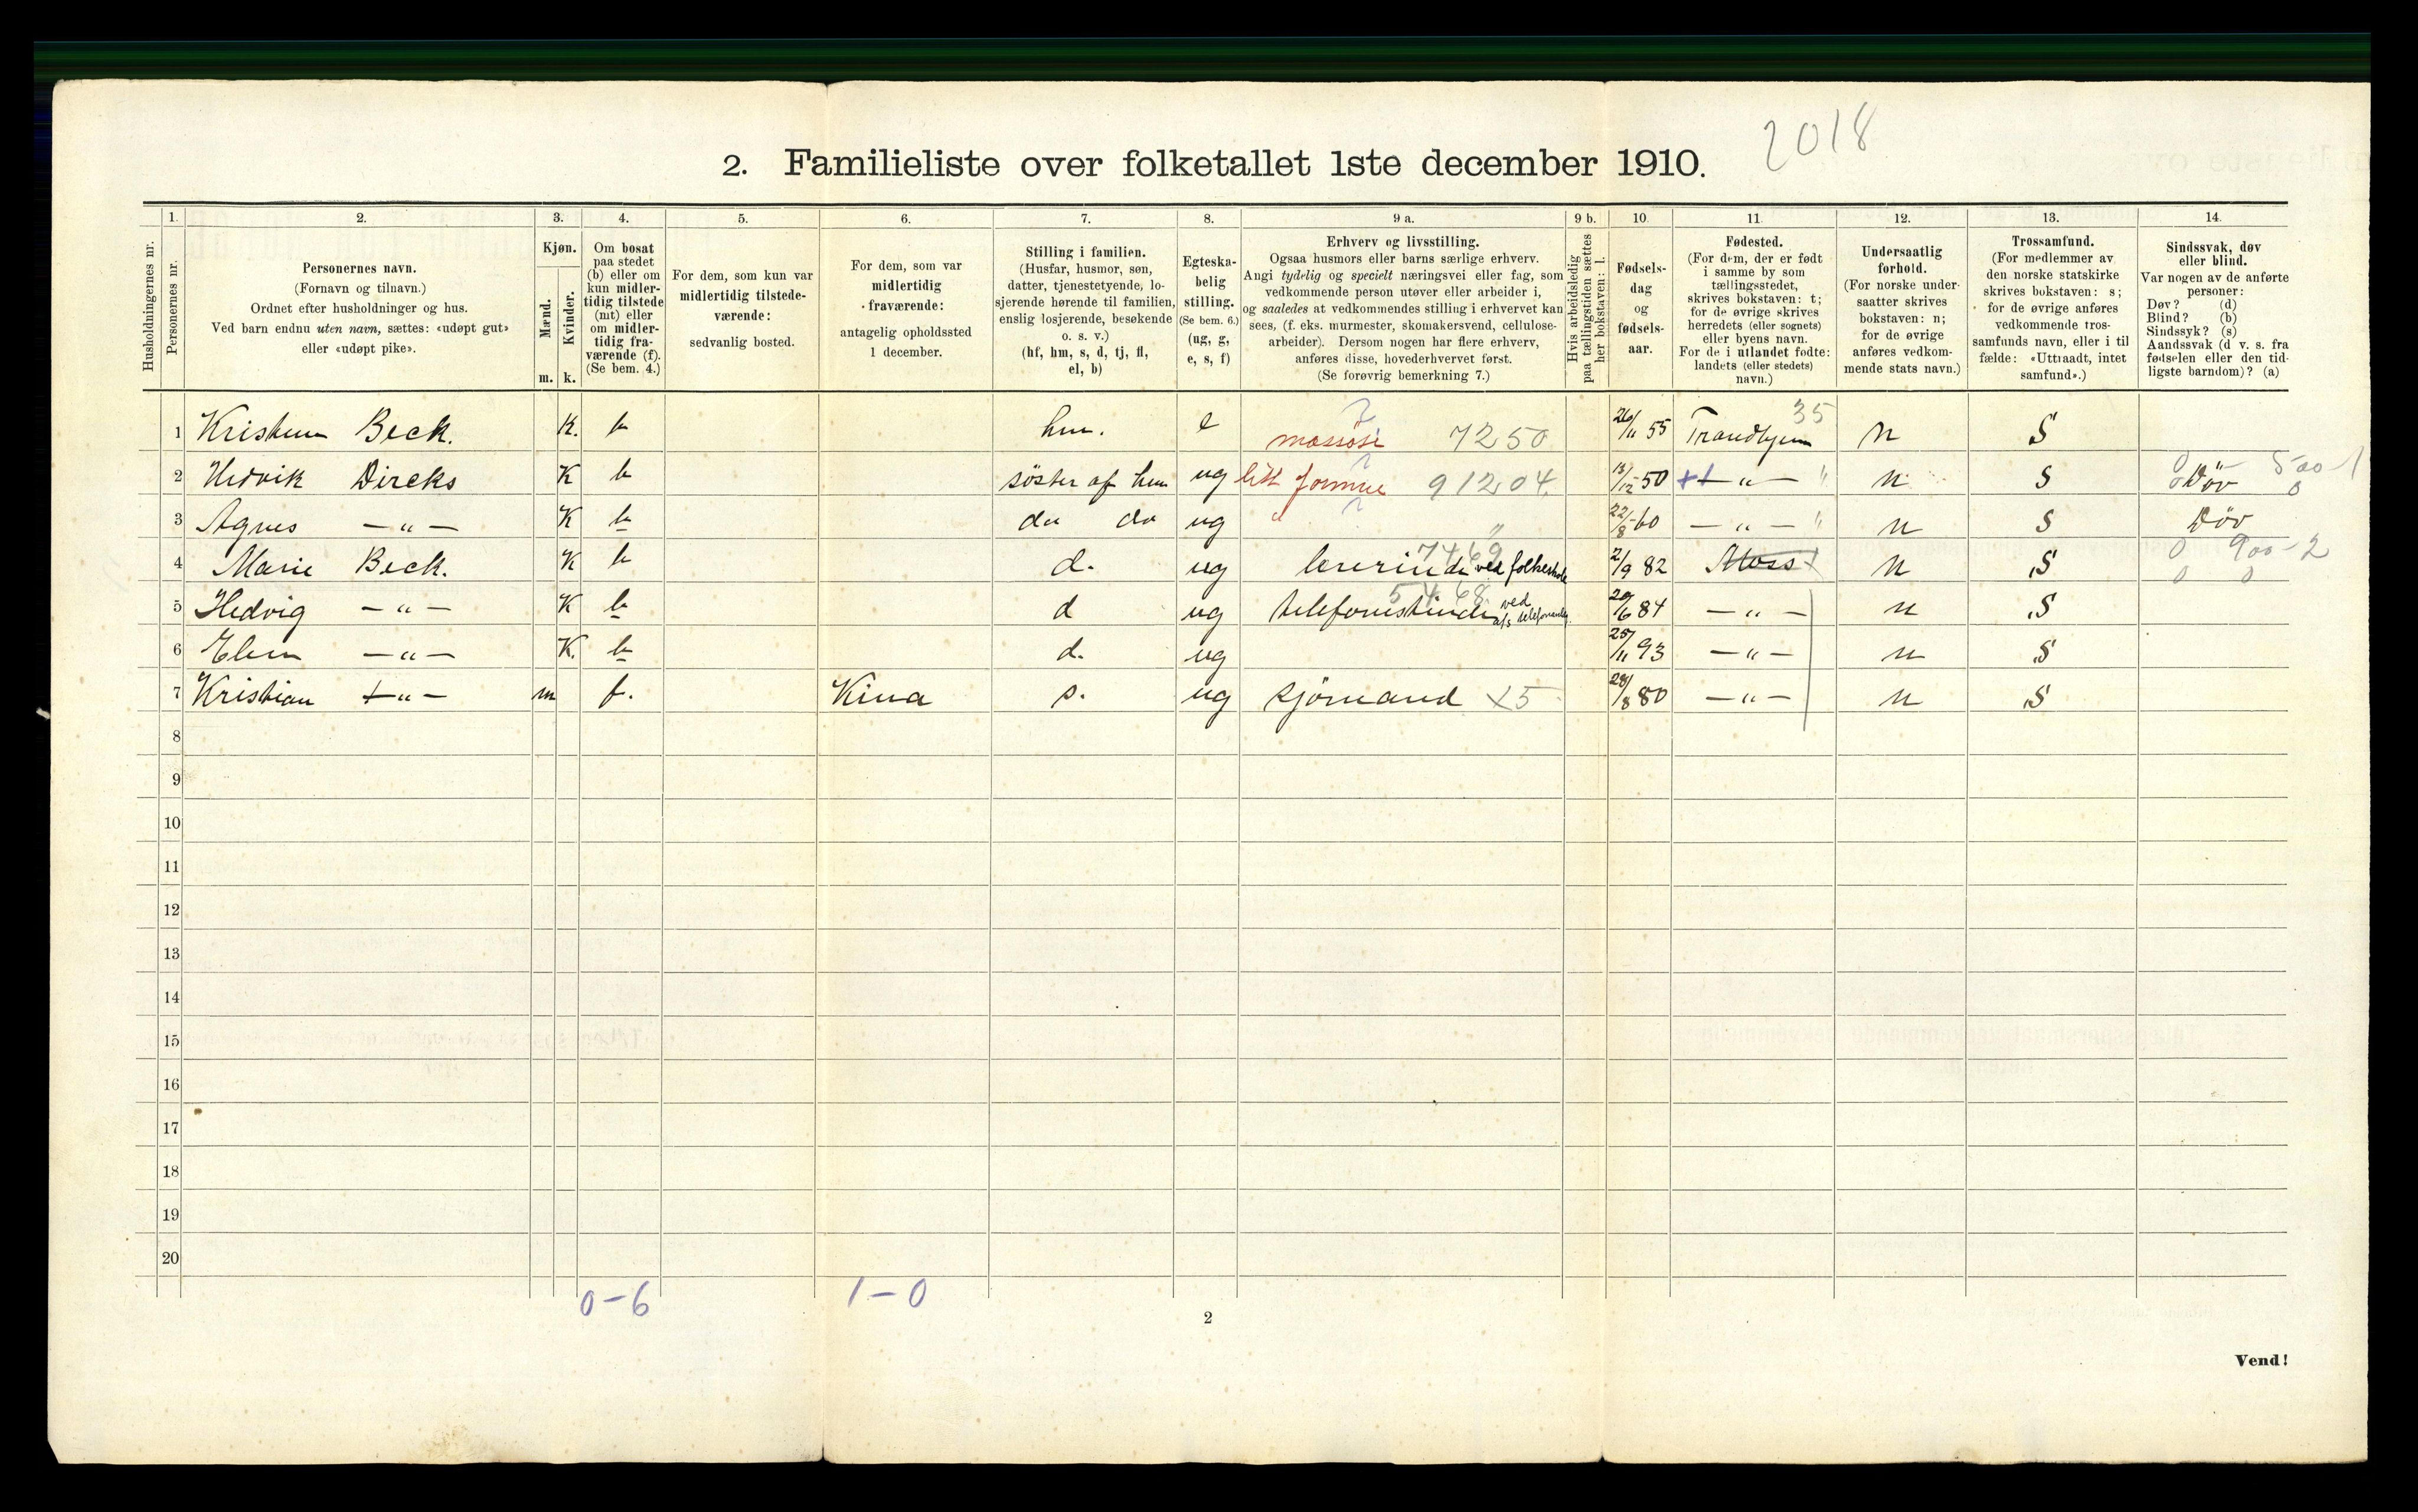 2018
2. Familieliste over folketallet 1ste december 1910.
Husholdningernes nr.
1. Personernes nr.
2. Personernes navn. (Fornavn og tilnavn.) Ordnet efter husholdninger og hus. Ved barn endnu uten navn, sættes: «udøpt gut» eller «udøpt pike».
3. Kjøn. Mænd. m. Kvinder. k.
4. Om bosat paa stedet (b) eller om kun midlertidig tilstede (mt) eller om midlertidig fraværende (f). (Se bem. 4.)
5. For dem, som kun var midlertidig tilstedeværende: sedvanlig bosted.
6. For dem, som var midlertidig fraværende: antagelig opholdssted 1 december.
7. Stilling i familien. (Husfar, husmor, søn, datter, tjenestetyende, losjerende hørende til familien, enslig losjerende, besøkende o. s. v.) (hf, hm, s, d, tj, fl, el, b)
8. Egteskabelig stilling. (Se bem. 6.) (ug, g, e, s, f)
9 a. Erhverv og livsstilling. Ogsaa husmors eller barns særlige erhverv. Angi tydelig og specielt næringsvei eller fag, som vedkommende person utøver eller arbeider i, og saaledes at vedkommendes stilling i erhvervet kan sees, (f. eks. murmester, skomakersvend, cellulosearbeider). Dersom nogen har flere erhverv, anføres disse, hovederhvervet først. (Se forøvrig bemerkning 7.)
9 b. Hvis arbeidsledig paa tællingstiden sættes her bokstaven: l.
10. Fødselsdag og fødselsaar.
11. Fødested. (For dem, der er født i samme by som tællingsstedet, skrives bokstaven: t; for de øvrige skrives herredets (eller sognets) eller byens navn. For de i utlandet fødte: landets (eller stedets) navn.)
12. Undersaatlig forhold. (For norske undersaatter skrives bokstaven: n; for de øvrige anføres vedkommende stats navn.)
13. Trossamfund. (For medlemmer av den norske statskirke skrives bokstaven: s; for de øvrige anføres vedkommende trossamfunds navn, eller i tilfælde: «Uttraadt, intet samfund».)
14. Sindssvak, døv eller blind. Var nogen av de anførte personer: Døv? (d) Blind? (b) Sindssyk? (s) Aandssvak (d. v. s. fra fødselen eller den tidligste barndom)? (a)
1 Beck. K. b hm. e massöse 7250 26/11 55 Trondhjem 35 n S
2 Hedvik Dircks K b söster af hm ug litt formue 91204. 13/12 50 — " — n S Döv 500-1
3 Agnes — " — K b do do ug " 22/8 60 — " — n S Döv
4 Marie Beck. K b d. ug lererinde ved folkeskole 7469 2/9 82 Moss n S 900-2
5 Hedvig — " — K b d ug telefonistinde ved 5468 29/6 84 — " — n S
6 — " — K. b d. ug 25/11 93 — " — n S
7 Kristian — " — m f. Kina s. ug sjömand x5 28/8 80 — " — n S
8
9
10
11
12
13
14
15
16
17
18
19
20
0-6 1-0
2
Vend!